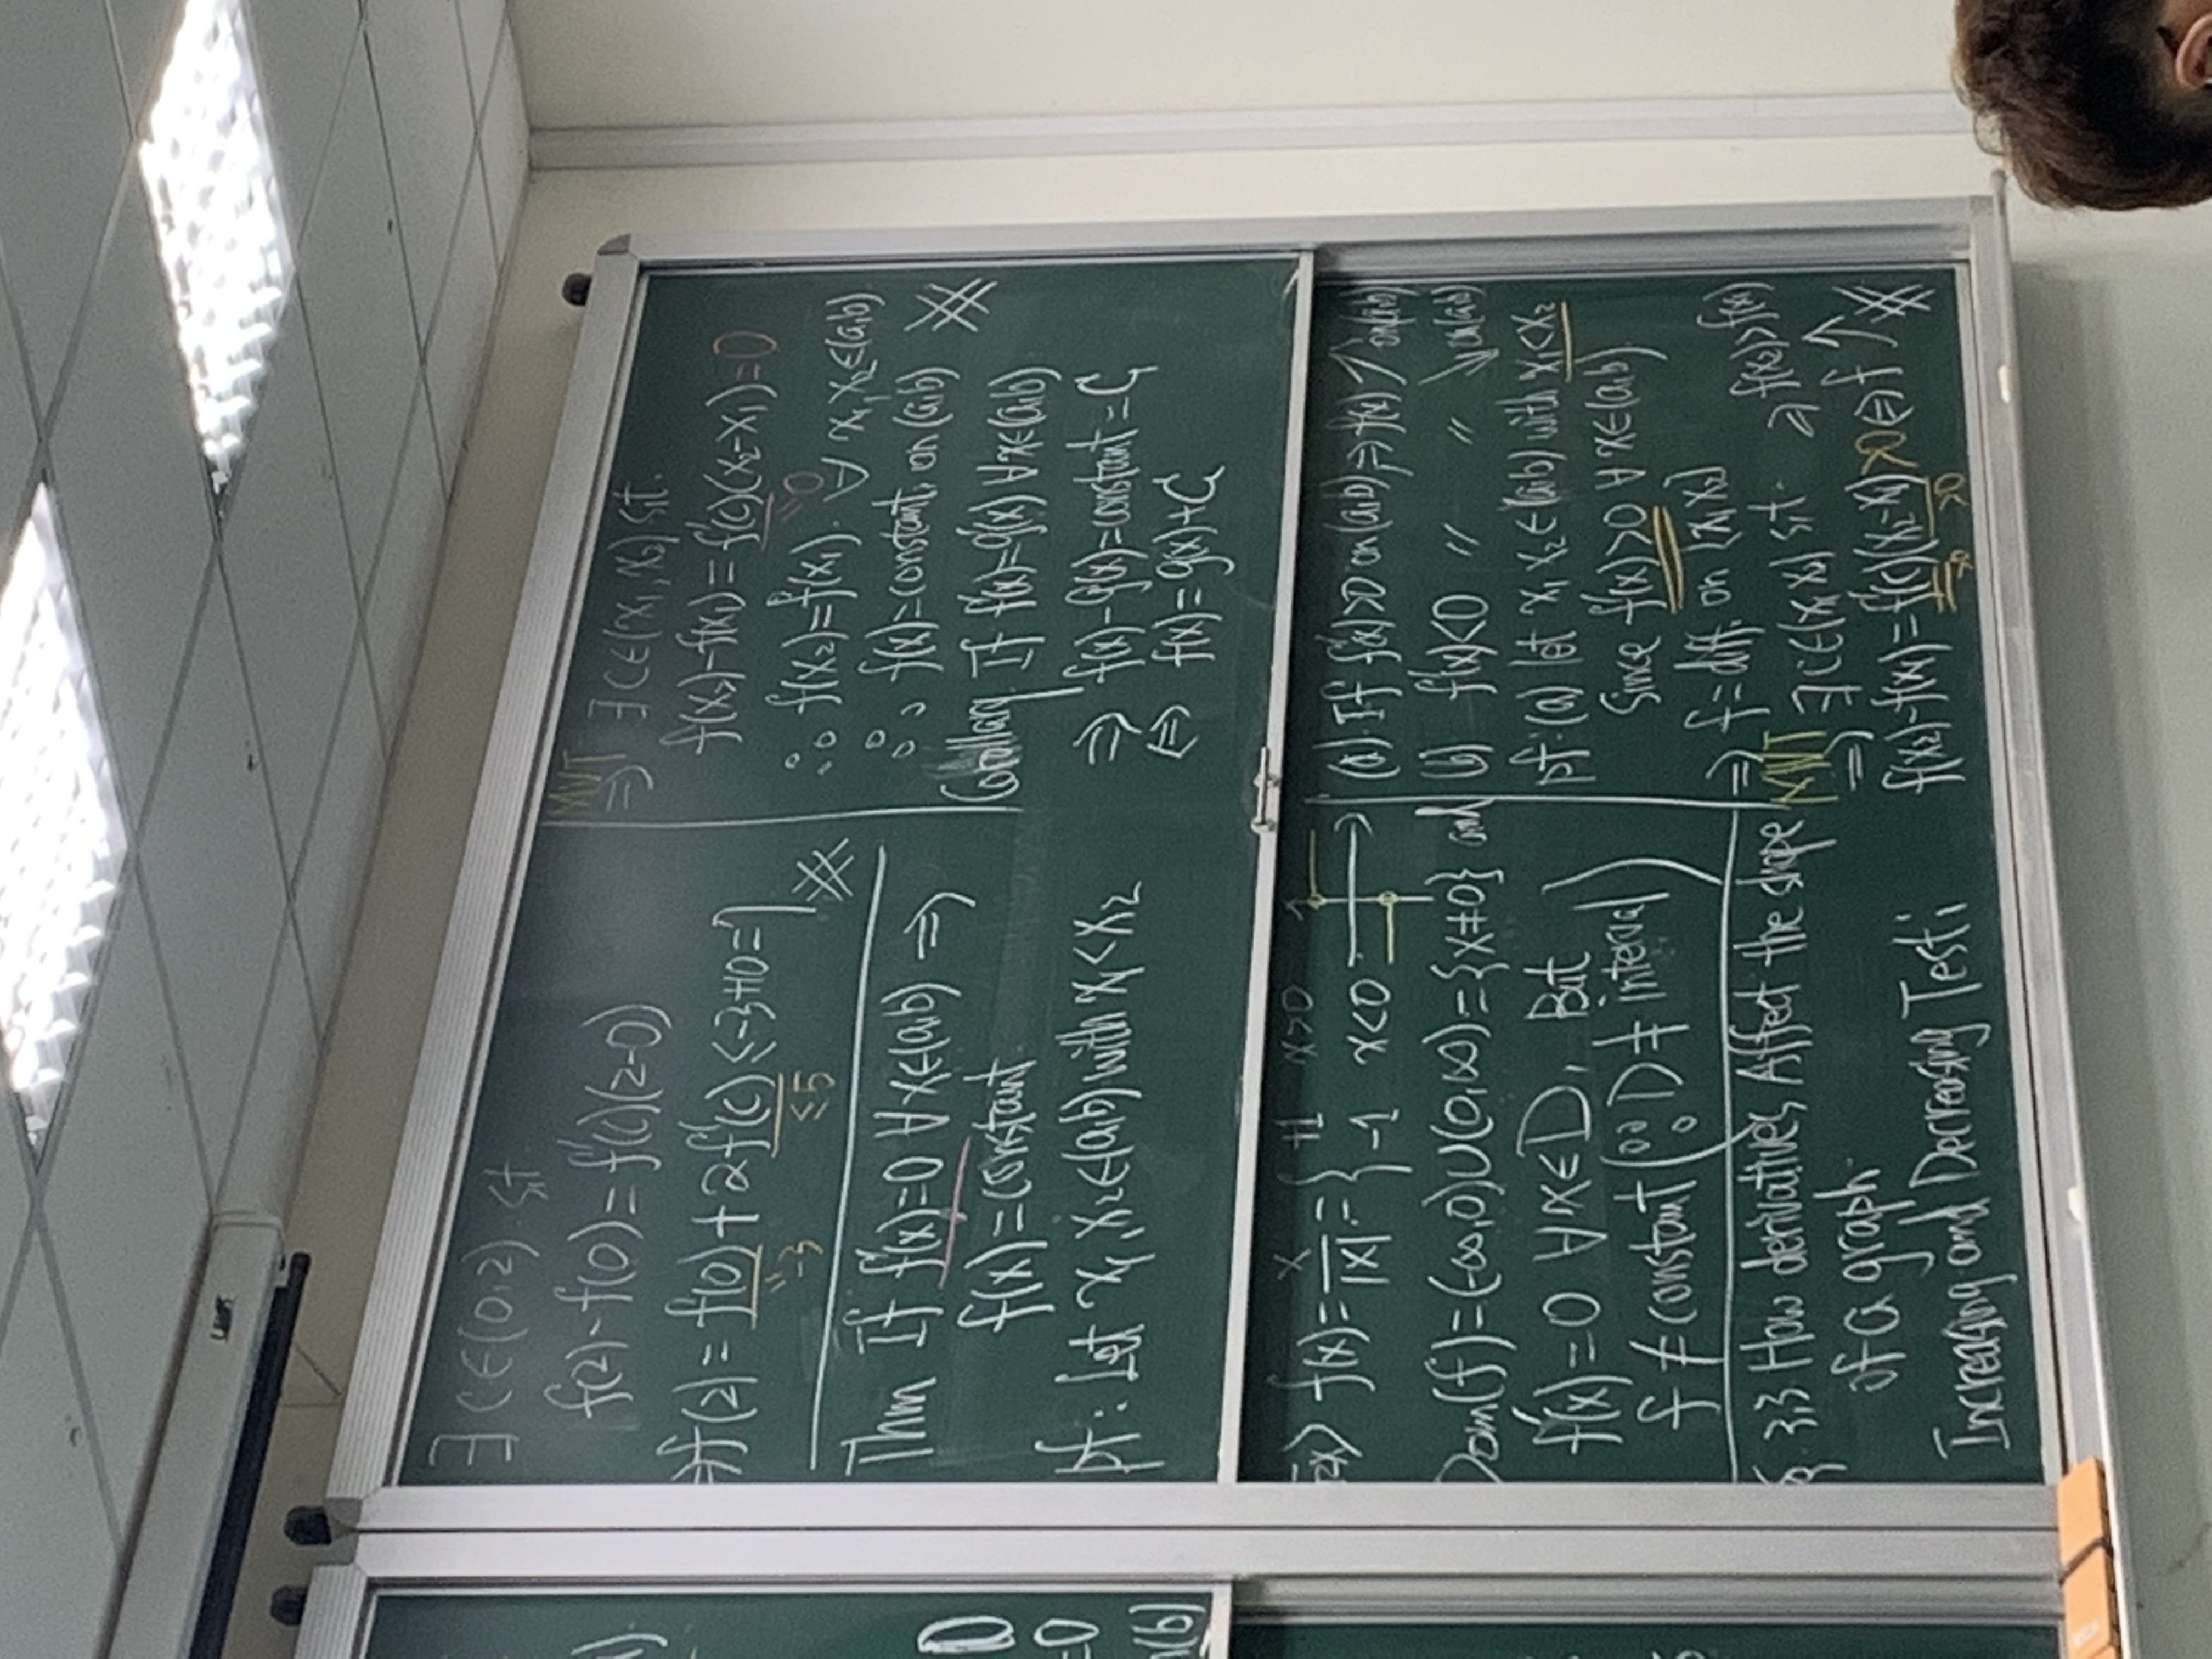 ∃ c∈(0,2) s.t.
f(2)-f(0)=f'(c)(2-0)
⇒f(2)=f(0)+2f'(c)≤-3+10=7
"-3
≤5
※
Thm If f'(x)=0 ∀x∈(a,b) ⇒
f(x)=constant
pf: Let x₁,x₂∈(a,b) with x₁<x₂
MVT
⇒ ∃ c∈(x₁,x₂) s.t.
f(x₂)-f(x₁)=f'(c)(x₂-x₁)=0
"0
∴ f(x₂)=f(x₁). ∀ x₁,x₂∈(a,b)
∴ f(x)=constant, on (a,b) ※
Corollary If f'(x)=g'(x) ∀x∈(a,b)
⇒ f(x)-g(x)=constant=C
⇔ f(x)=g(x)+C
ex> f(x)=x/|x|={ +1 x>0
-1 x<0
Dom(f)=(-∞,0)∪(0,∞)={x≠0} and
f'(x)=0 ∀x∈D, But
f≠constant (∵ D≠interval)
§ 3.3 How derivatives Affect the shape
of a graph
Increasing and Decreasing Test:
(a) If f'(x)>0 on (a,b),⇒f(x)↗ on(a,b)
(b) f'(x)<0 〃 〃 ↘on(a,b)
pf:(a) let x₁ x₂∈(a,b) with x₁<x₂
Since f'(x)>0 ∀ x∈(a,b)
⇒ f=diff. on [x₁,x₂]
MVT
⇒ ∃ c∈(x₁,x₂) s.t. ⇒ f(x₂)>f(x₁)
f(x₂)-f(x₁)=f'(c)(x₂-x₁)>0⇔f↗※
>0 >0